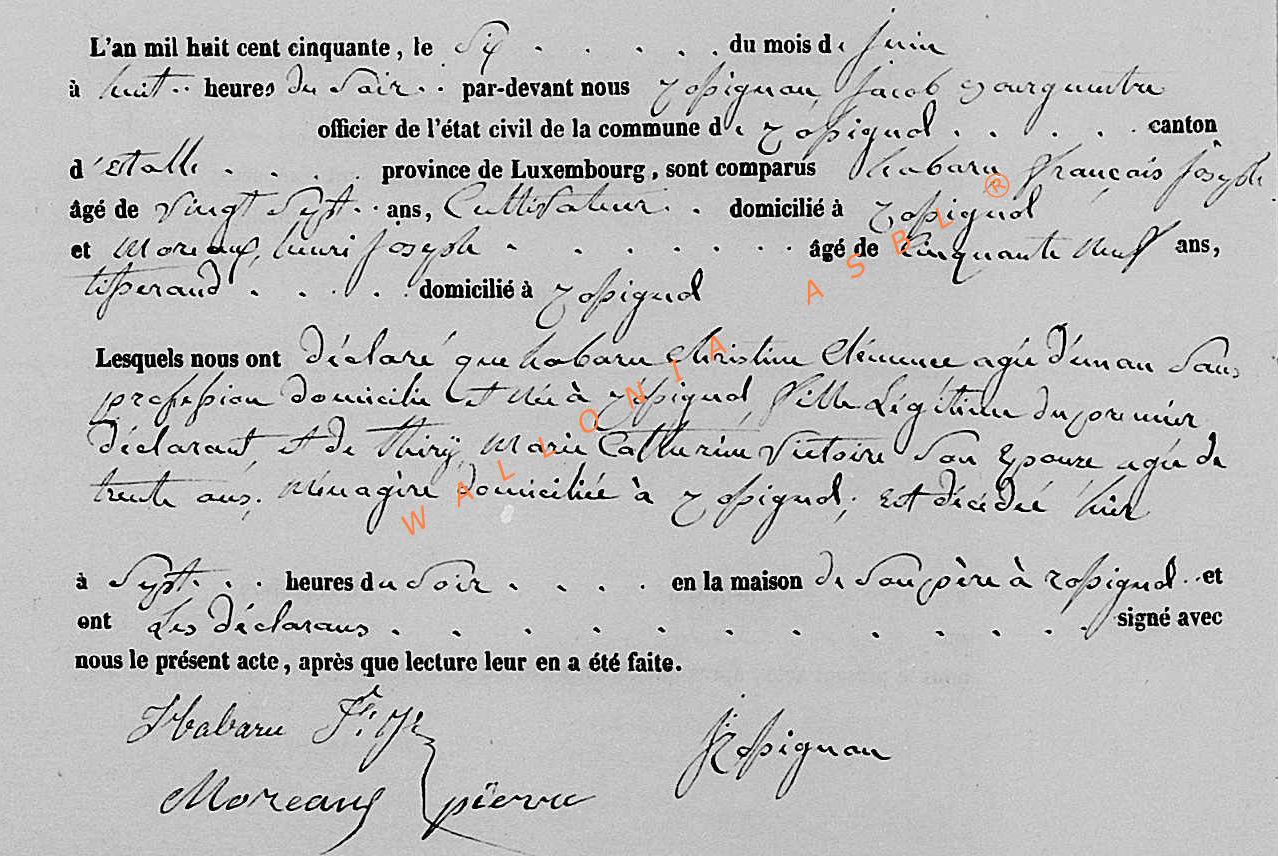 L'an mil huit cent cinquante, le Six . . . . . du mois de Juin
à huit .. heures du Soir .. par-devant nous Rossignon, Jacob Bourguemtre
officier de l'état civil de la commune de Rossignol . . . . . canton
d'Etalle . . . . . province de Luxembourg, sont comparus habaru françois Joseph
âgé de Vingt Sept .. ans, Cultivateur . . domicilié à Rossignol
et Moreaux, henri Joseph . . . . . . . . âgé de Cinquante neuf ans,
tisserand . . . . . domicilié à Rossignol
Lesquels nous ont déclaré que habaru Christine Clémence agée d'un an Sans
profession domicilié et née à Rossignol, fille Légitime du premier
déclarant, et de thiry, Marie Catherine Victoire Son Epouse agée de
trente ans, Ménagère domiciliée à Rossignol, est décédée hier
à Sept . . . heures du Soir . . . . en la maison de Son père à Rossignol .. et
ont Les déclarans . . . . . . . . . . . . signé avec
nous le présent acte, après que lecture leur en a été faite.
Habaru fr. Jh
JRossignon
Moreaux pierre
WALLONIA ASBL ®